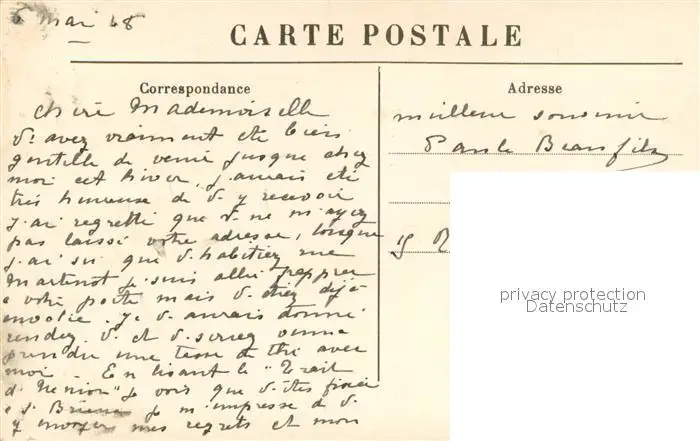 6 mai 48
CARTE POSTALE
Correspondance
Adresse
chère Mademoiselle
V. avez vraiment été bien
gentille de venir jusque chez
moi cet hiver, j'aurais été
très heureuse de v. y recevoir
j'ai regretté que v. ne m'ayez
pas laissé votre adresse, lorsque
j'ai su que v. habitiez rue
Martenot je suis allée frapper
à votre porte mais v. étiez déjà
envolée. Je v. aurais donné
rendez. v. et v. seriez venue
prendre une tasse de thé avec
moi - En lisant le "Trait
d'Union" je vois que v. êtes fixée
à St Brieuc je m'empresse de v.
y envoyer mes regrets et mon
meilleur souvenir
Paule Beaufils
15 R
privacy protection
Datenschutz